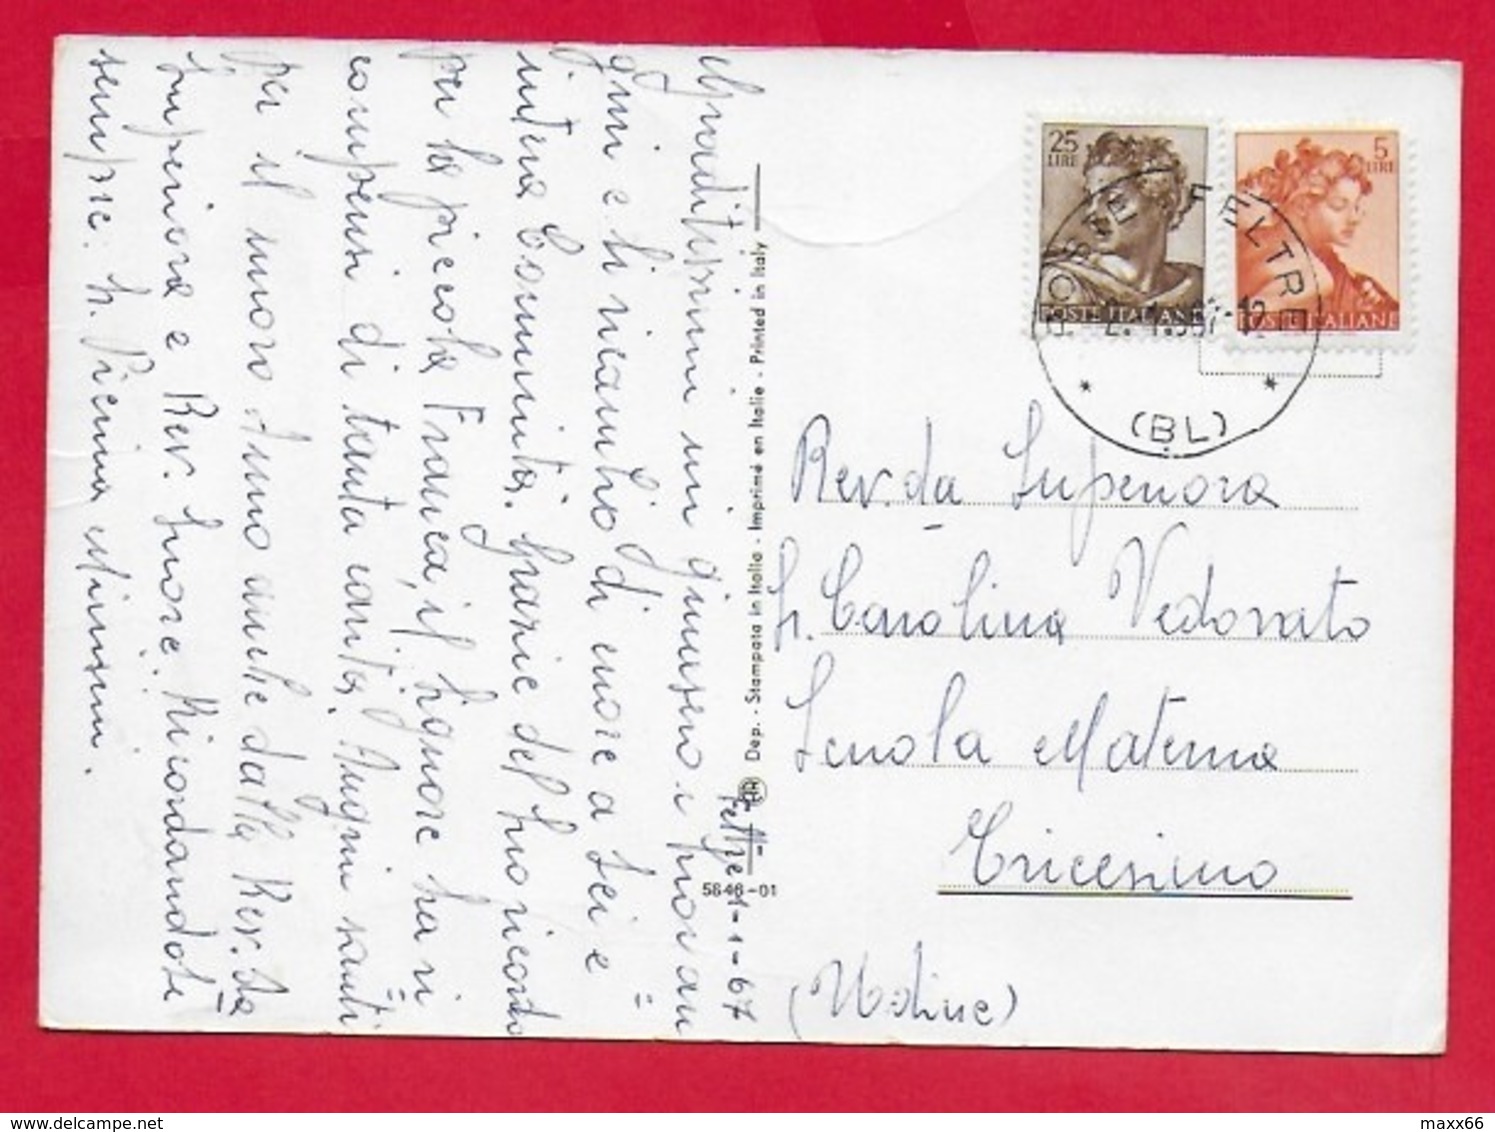 Feltre 1-1-67
Graditissimi mi giunsero i pros au=
guri e li ricambio di cuore a Lei e
intera Comunità. Grazie del suo ricordo
per la piccola Franca, il Signore la ri=
compensi di tanta carità. Auguri santi
per il nuovo Anno anche dalla Rev.da
Superiora e Rev. Suore. Ricordandoti
sempre. S. Pierina
25 LIRE
POSTE ITALIANE
5 LIRE
POSTE ITALIANE
FELTRE
(BL)
Rev.da Superiora
S. Carolina Vedovato
Scuola Materna
Tricesimo
(Udine)
Dep. - Stampato in Italia - Imprimé en Italie - Printed in Italy
5646-01
delcampe.net
maxx66